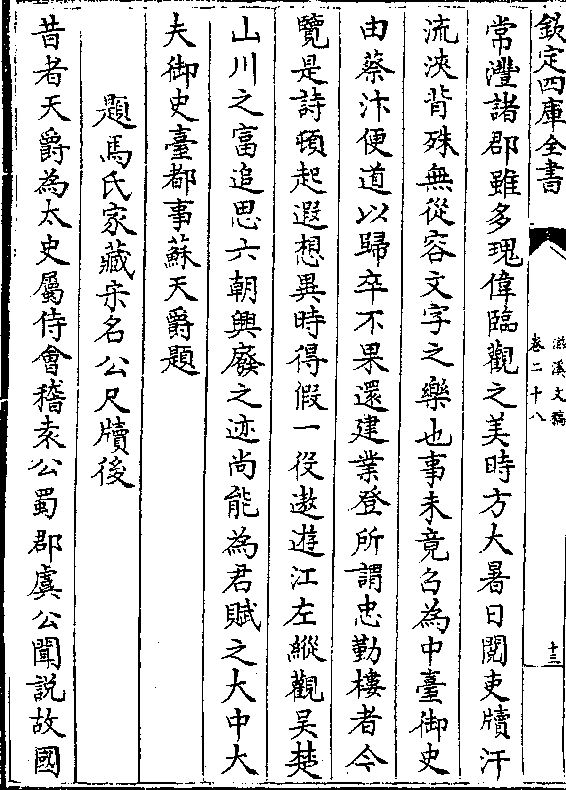 欽定四庫全書
滋溪文稿
卷二十八
十三
常灃諸郡雖多瑰偉臨觀之美時方大暑日閱吏牘汗
流浹背殊無從容文字之樂也事未竟召為中臺御史
由蔡汴便道以歸卒不果還建業登所謂忠勤樓者今
覽是詩頓起遐想異時得假一役遨遊江左縱觀吴楚
山川之富追思六朝興廢之迹尚能為君賦之大中大
夫御史臺都事蘇天爵題
題馬氏家藏宋名公尺牘後
昔者天爵為太史屬侍會稽袁公蜀郡虞公聞説故國